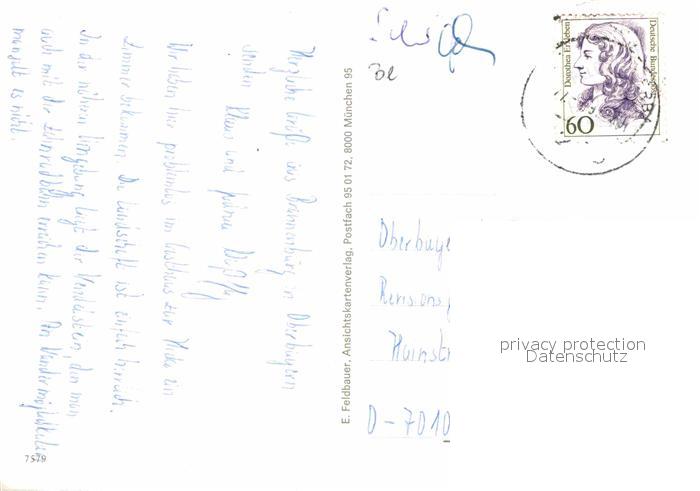 Herzliche Grüße aus Brannenburg in Oberbayern
senden Klaus und
Wir haben hier problemlos im Gasthaus zur Post ein
Zimmer bekommen. Die Landschaft ist einfach herrlich.
In der näheren Umgebung liegt der Wendelstein, den man
auch mit der Zahnradbahn erreichen kann. An Wandermöglichkeiten
mangelt es nicht.
7579
E. Feldbauer, Ansichtskartenverlag, Postfach 95 01 72, 8000 München 95
Dorothea Erxleben
Deutsche Bundespost
60
Oberbuge
Revisions
Hainstr
D-7010
privacy protection
Datenschutz